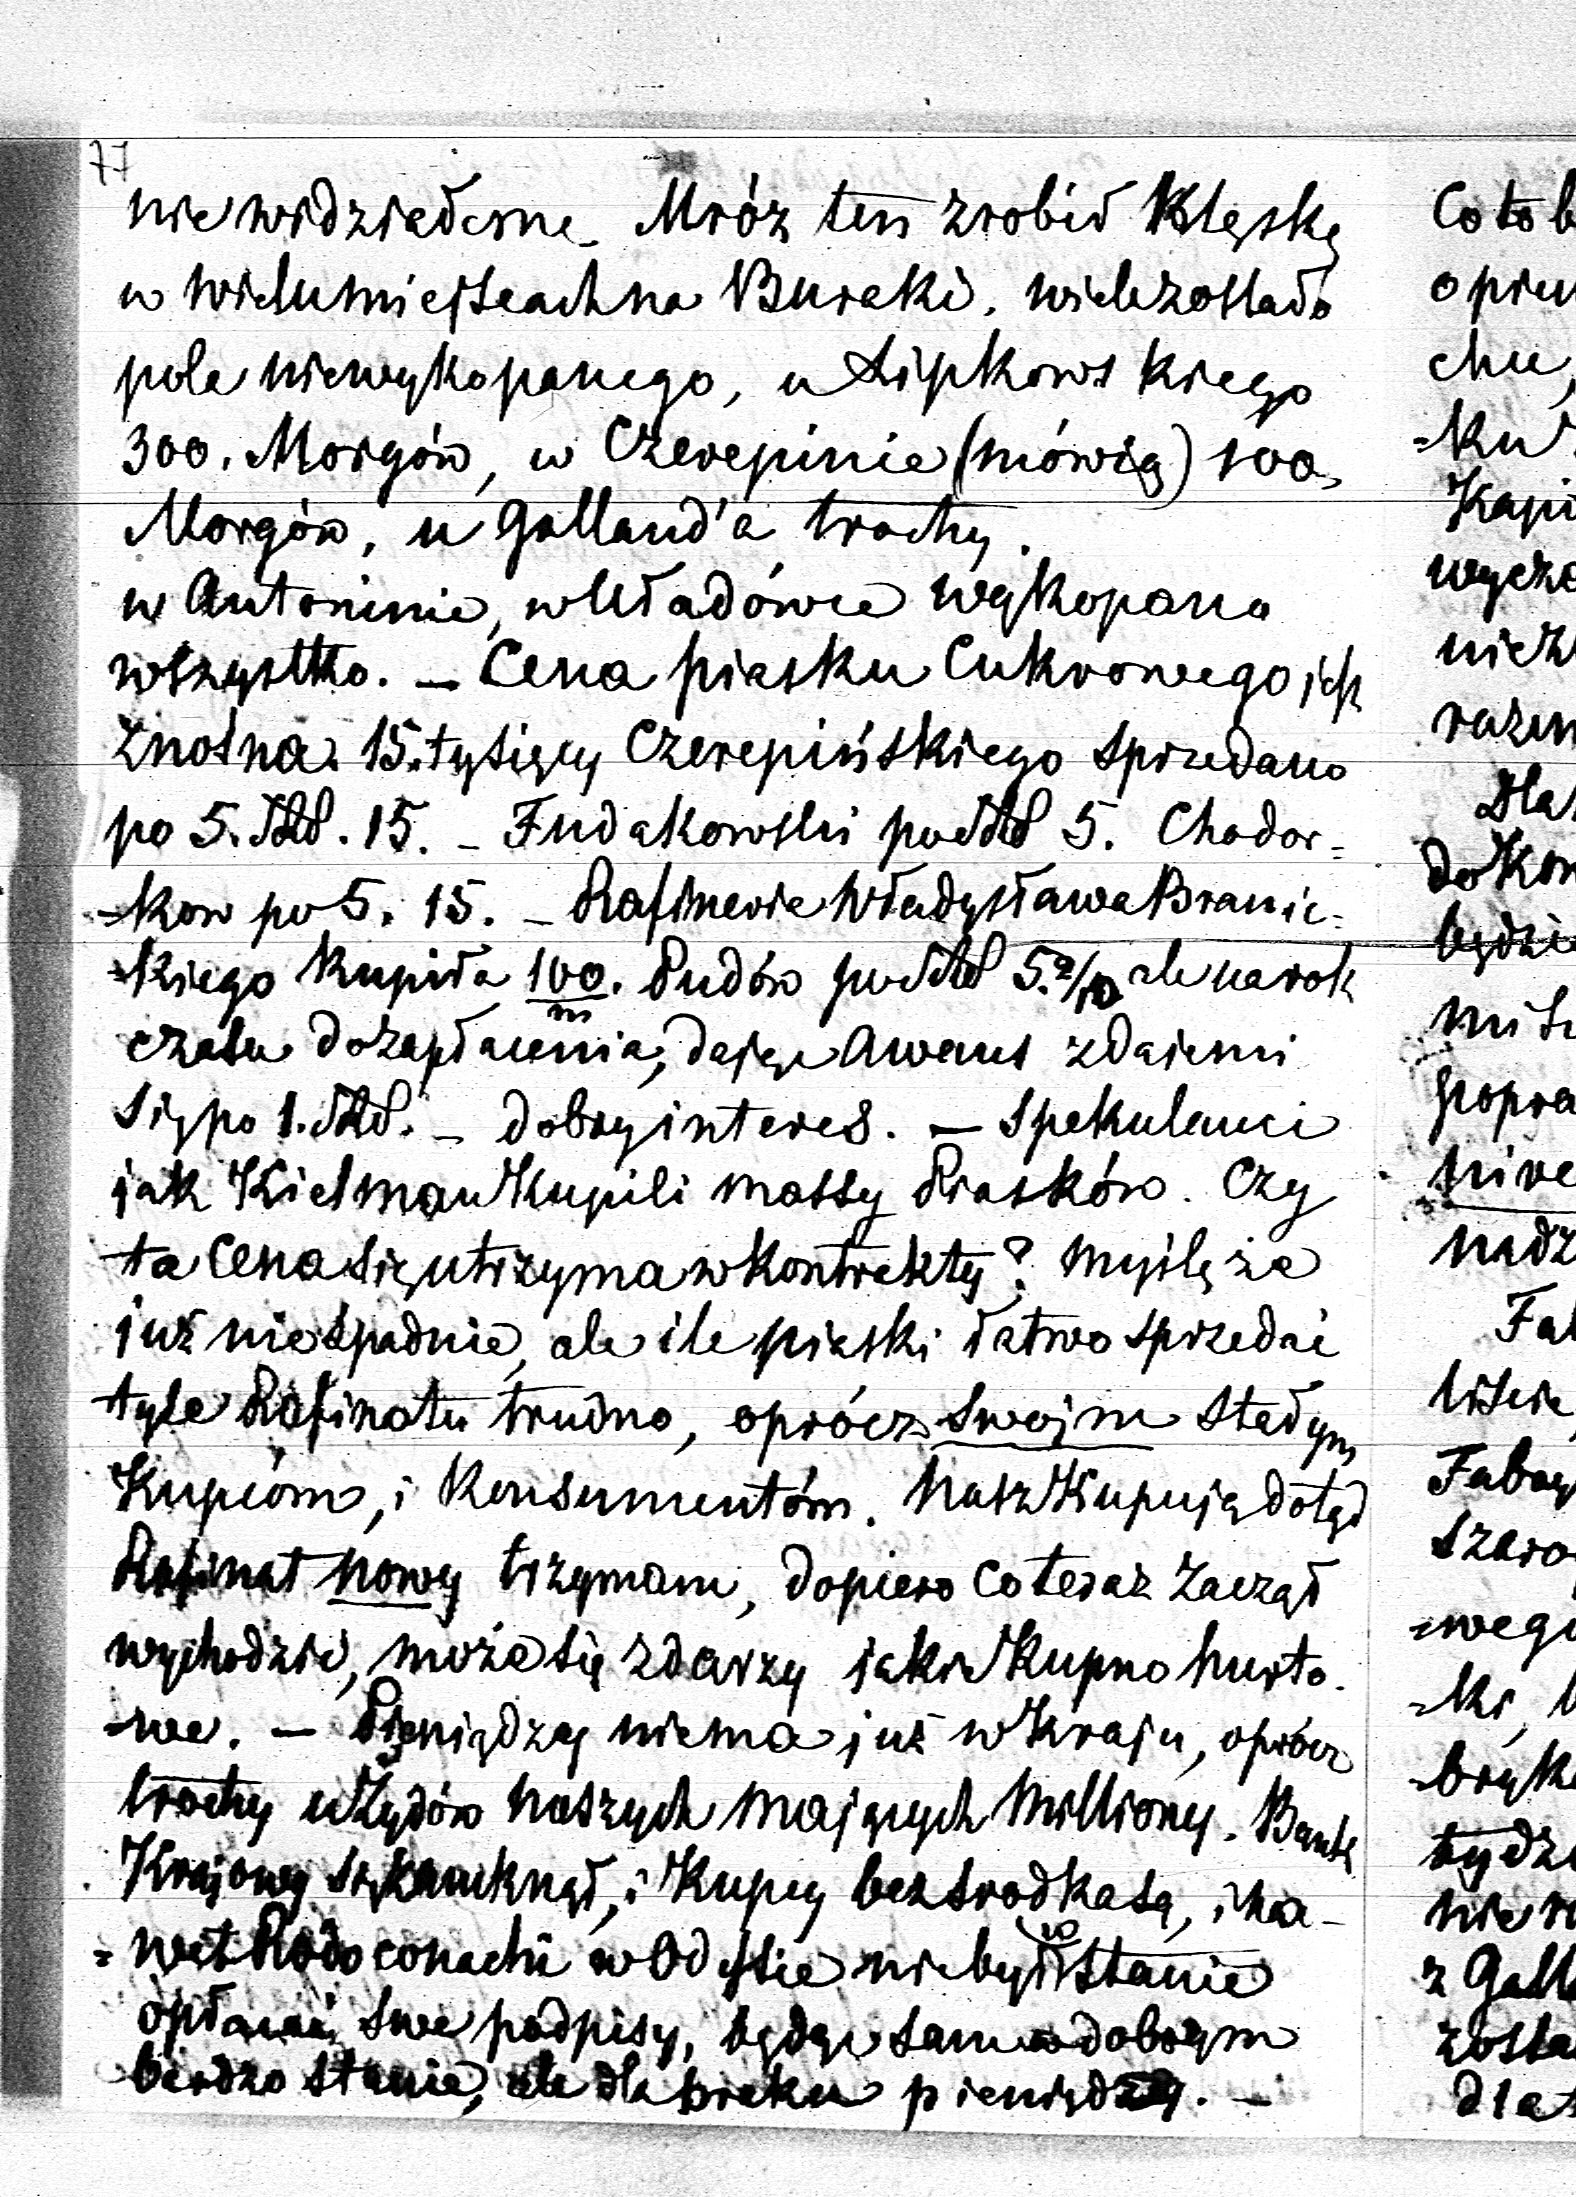 77
nie widziałem. Mróz ten zrobił Klęskę
w wielu miejscach na Buraki. wiele zostało
pola niewykopanego, u Lipkowskiego
300. Morgów, w Czerepinie (mówią) 100,
Morgów, u Galland'a trochy.
w Antoninie, w Uładówce wykopano
wszystko. — Cena piasku Cukrowego jest
znośna. 15. tysięcy Czerepińskiego sprzedano
po 5. Rbl. 15. — Fudakowski po Rbl 5. Chodor=
=kow po 5. 15. — Rafinerie Władysława Branic=
=kiego Kupiła 100. Pudów po Rbl 5. 2/10 ale na rok
m
czasu do zapłacenia, dając Awans zdaje mi
się po 1. Rbl. — dobry interes. — Spekulanci
jak Kielman Kupili massy Piasków. Czy
ta Cena się utrzyma w Kontrakty? myślę że
już nie spadnie, ale ile piaski łatwo sprzedać
tyle Rafinatu trudno, oprócz swojm stałym
Kupcóm, i Konsumentóm. Nasz Kupują dotąd
Rafinat nowy trzymam, dopiero co teraz Zaczął
wychodzić, może się zdarzy jakie Kupno hurto-
=we. — Pieniądzy niema już w Kraju, oprócz
trochy u Żydów naszych mających Milliony. Bank
Krajowy się zamknął, i Kupcy bez srodka są, i na-
=wet Rodoconachi w Odessie nie był w stanie
opłacać swe podpisy, będąc sam w dobrym
bardzo stanie, ale dla braku pieniędzy. —
Co to b
opiu
chu,
=ku
Kapi
wycze
niez
razem
Dla
do Kon
będzie
mi s
popra
nive
nadz
Fab
liscie,
Fabry
szaro
=wego
=ki,
bryk
tydz
nie r
z Gall
zosta
dla